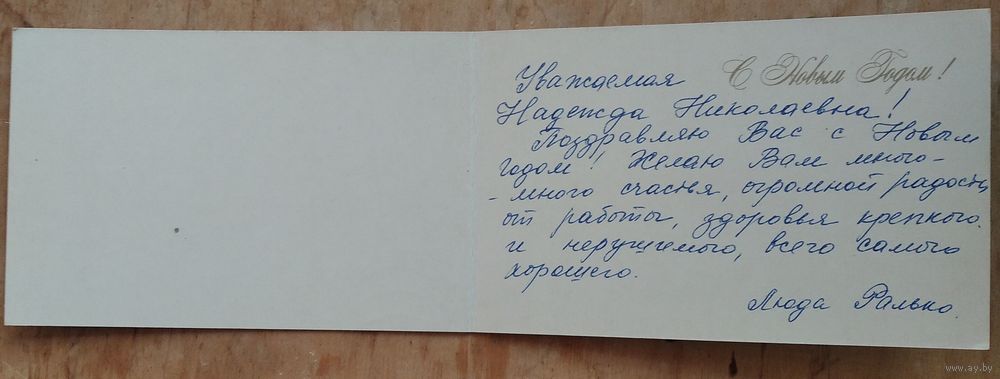 С Новым Годом!
Уважаемая
Надежда Николаевна!
Поздравляю Вас с Новым
годом! Желаю Вам много-
-много счастья, огромной радости
от работы, здоровья крепкого
и нерушимого, всего самого
хорошего.
Люда Ралько.
www.ay.by